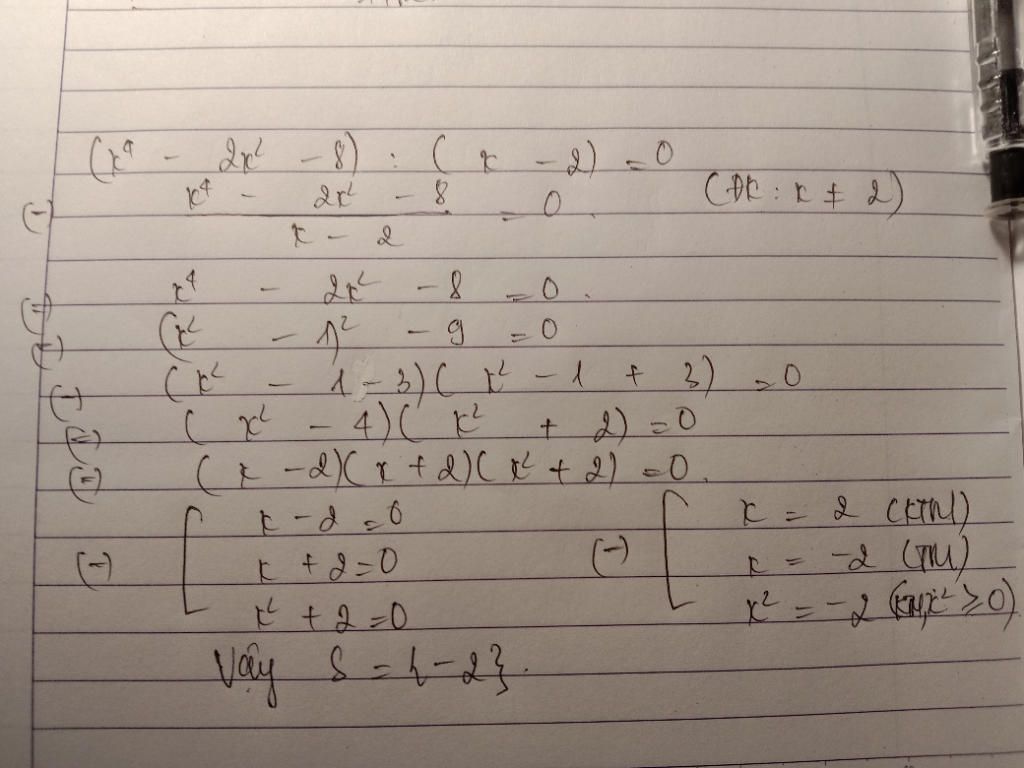 (x⁴ - 2x² - 8) : (x - 2) = 0
(=) x⁴ - 2x² - 8 / x - 2 = 0. (ĐK: x ≠ 2)
(=) x⁴ - 2x² - 8 = 0.
(=) (x² - 1)² - 9 = 0
(=) (x² - 1 - 3)(x² - 1 + 3) = 0
(=) (x² - 4)(x² + 2) = 0
(=) (x - 2)(x + 2)(x² + 2) = 0.
(=) [ x - 2 = 0 (=) [ x = 2 (KTM)
x + 2 = 0 x = -2 (TM)
x² + 2 = 0 x² = -2 (x² ≥ 0)
Vậy S = {-2}.